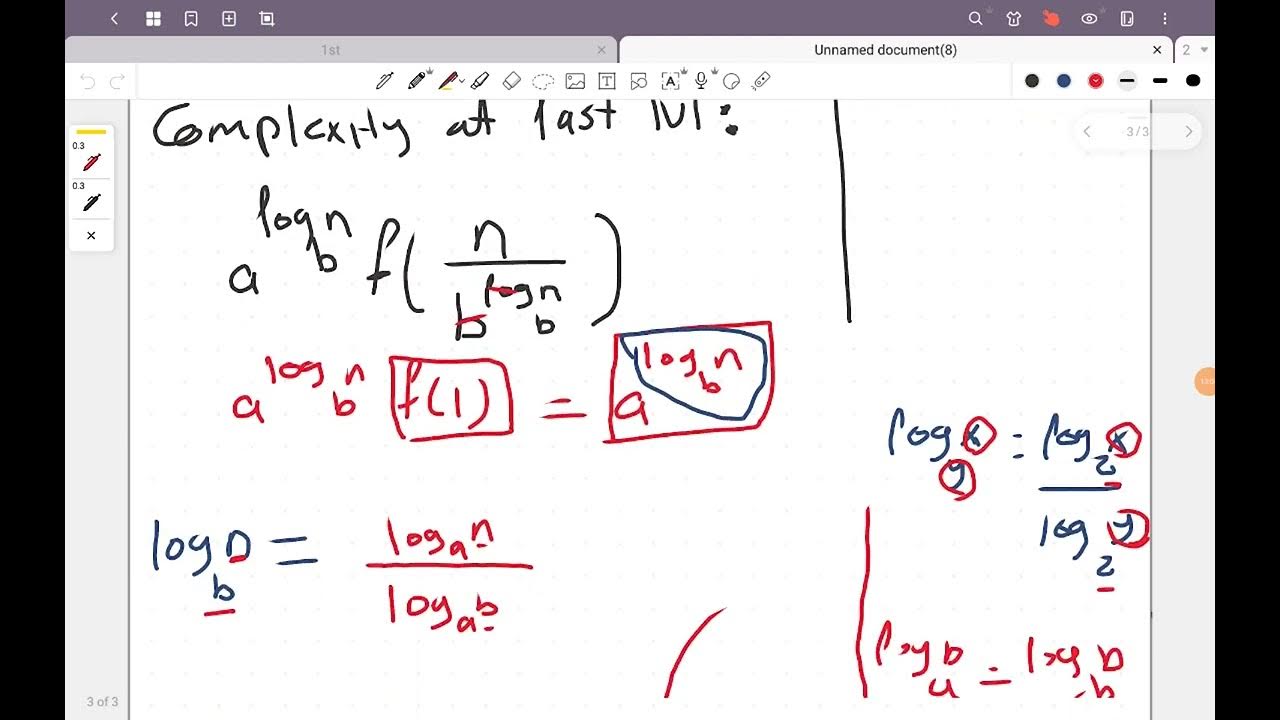 1st
Unnamed document(8)
2
3/3
0.3
0.3
Complexity at last lvl:
a^{log_b n} f( n / b^{log_b n} )
a^{log_b n} f(1) = a^{log_b n}
log_y x = log_z x / log_z y
log_b n = log_a n / log_a b
3 of 3